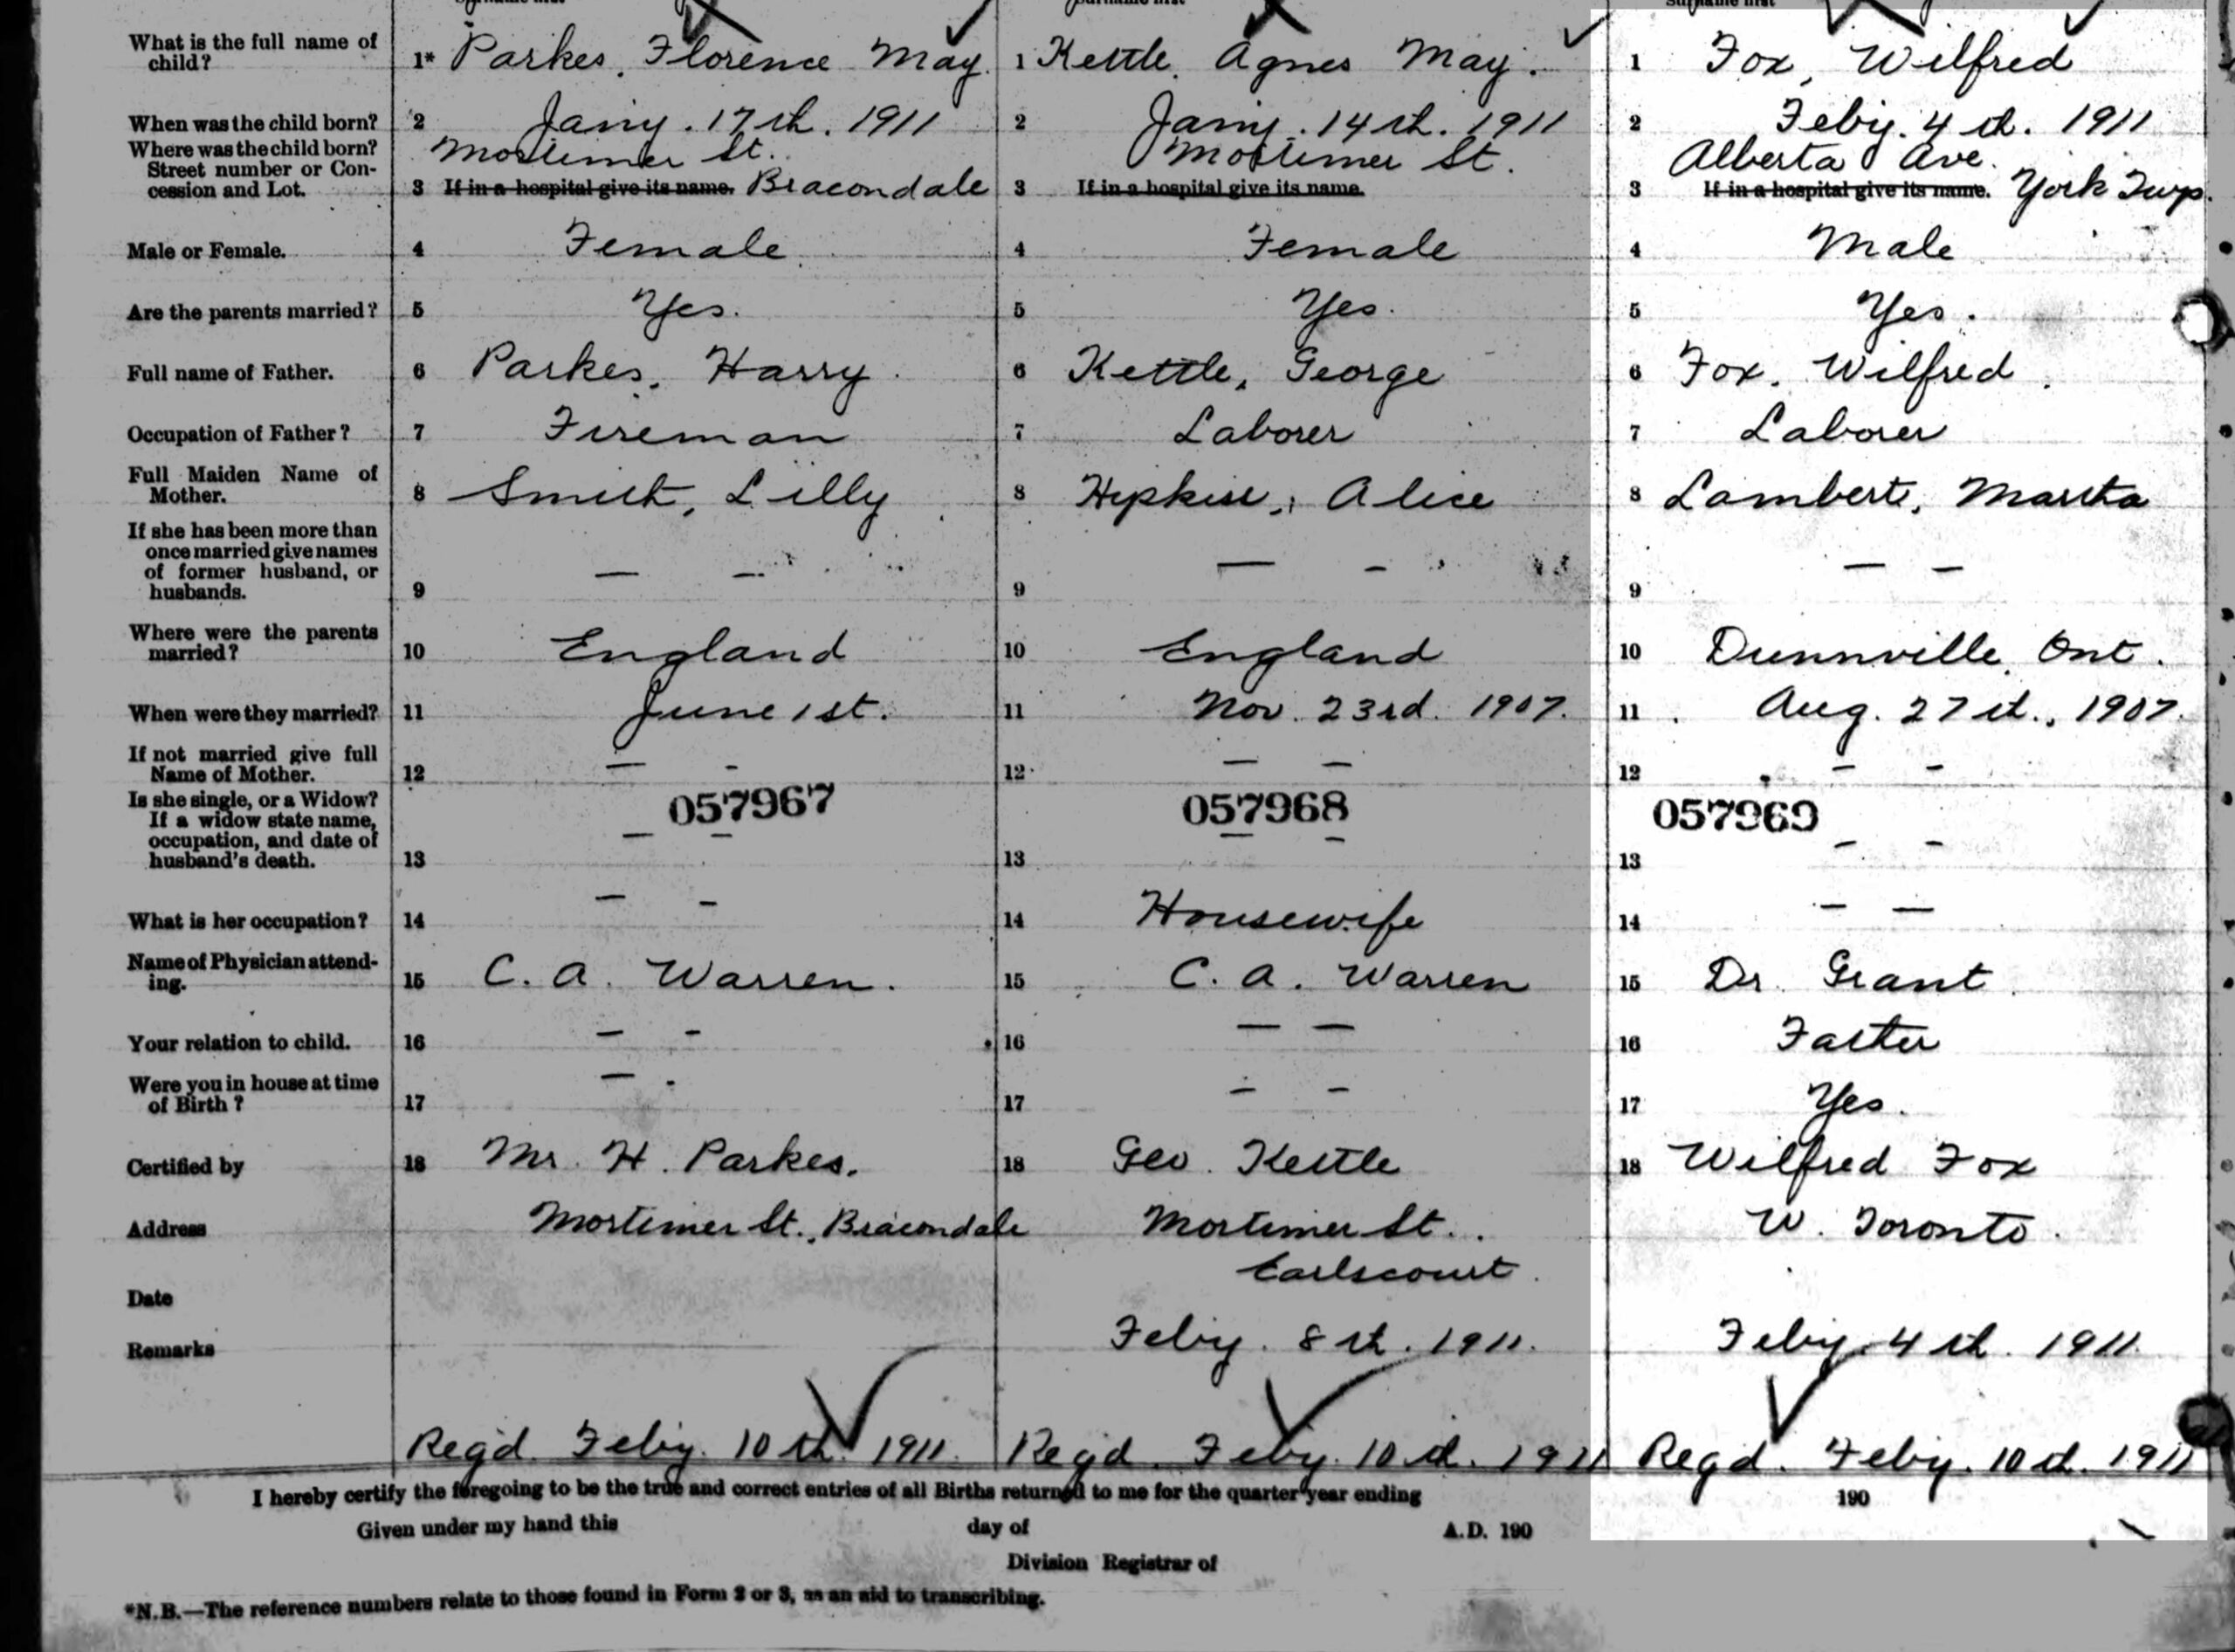 What is the full name of child?
1* Parkes, Florence May.
1 Kettle, Agnes May.
1 Fox, Wilfred
When was the child born?
2 Jany. 17th. 1911
2 Jany. 14th. 1911
2 Feby. 4th. 1911
Where was the child born?
Street number or Con-
cession and Lot.
Mortimer St.
3 If in a hospital give its name. Bracondale
Mortimer St.
3 If in a hospital give its name.
Alberta Ave.
3 If in a hospital give its name. York Twp.
Male or Female.
4 Female
4 Female
4 Male
Are the parents married?
5 Yes.
5 Yes.
5 Yes.
Full name of Father.
6 Parkes, Harry.
6 Kettle, George
6 Fox, Wilfred.
Occupation of Father?
7 Fireman
7 Laborer
7 Laborer
Full Maiden Name of
Mother.
8 Smith, Lilly
8 Hipkiss, Alice
8 Lambert, Martha
If she has been more than
once married give names
of former husband, or
husbands.
9 — —
9 — -
9 — —
Where were the parents
married?
10 England
10 England
10 Dunnville, Ont.
When were they married?
11 June 1st.
11 Nov. 23rd. 1907.
11 Aug. 27th., 1907.
If not married give full
Name of Mother.
12 — -
12 — —
12 — -
Is she single, or a Widow?
If a widow state name,
occupation, and date of
husband's death.
057967
13 — —
057968
13 — -
057969
13 — -
What is her occupation?
14 — -
14 Housewife
14 — —
Name of Physician attend-
ing.
15 C. A. Warren.
15 C. A. Warren
15 Dr. Grant.
Your relation to child.
16 — -
16 — —
16 Father
Were you in house at time
of Birth?
17 — -
17 — -
17 Yes.
Certified by
18 Mr. H. Parkes.
18 Geo. Kettle
18 Wilfred Fox
Address
Mortimer St., Bracondale
Mortimer St..
Earlscourt.
W. Toronto.
Date
Feby. 8th. 1911.
Feby. 4th. 1911.
Remarks
Reg'd. Feby. 10th. 1911.
Reg'd. Feby. 10th. 1911
Regd. Feby. 10th. 1911
I hereby certify the foregoing to be the true and correct entries of all Births returned to me for the quarter year ending 190
Given under my hand this day of A.D. 190
Division Registrar of
*N.B.—The reference numbers relate to those found in Form 2 or 3, as an aid to transcribing.